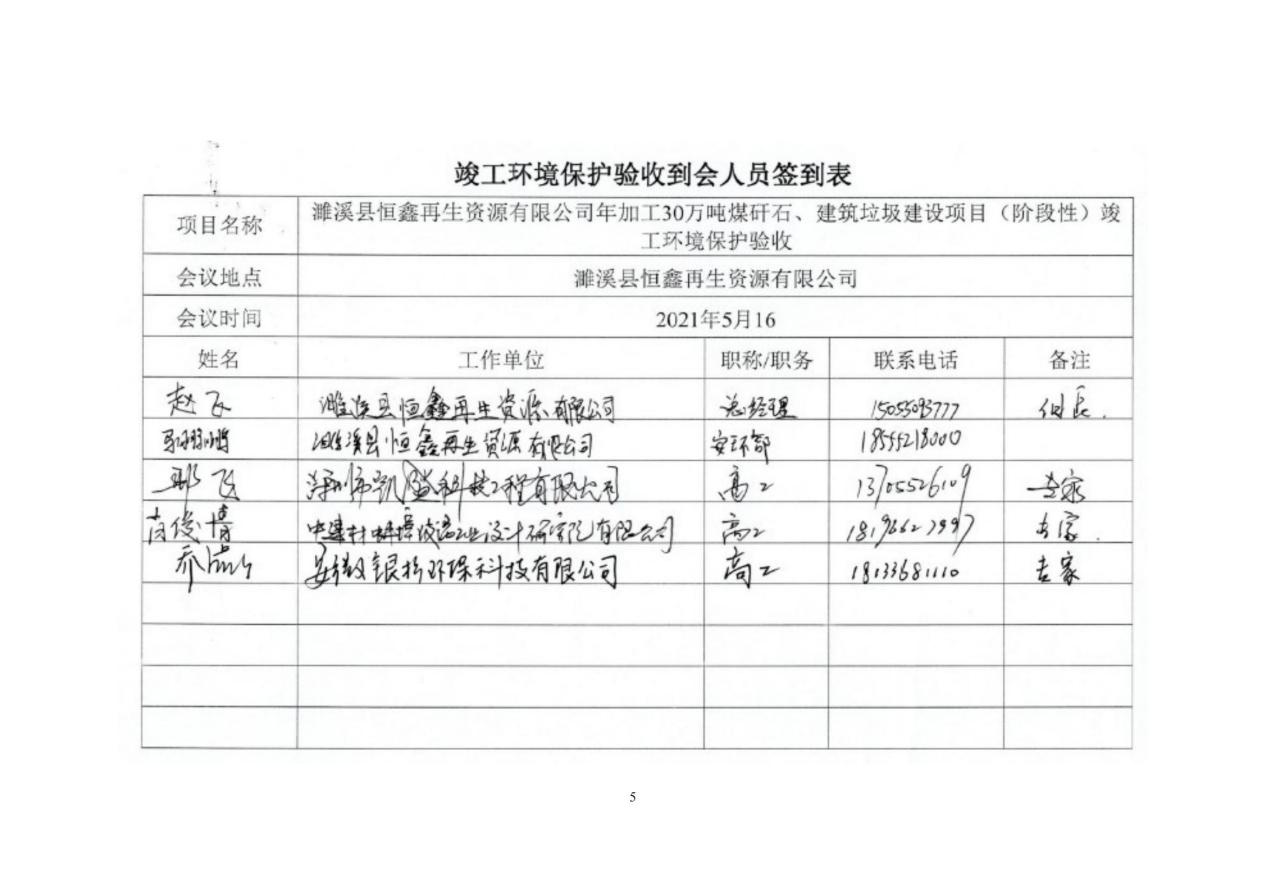 竣工环境保护验收到会人员签到表
项目名称
濉溪县恒鑫再生资源有限公司年加工30万吨煤矸石、建筑垃圾建设项目（阶段性）竣
工环境保护验收
会议地点 濉溪县恒鑫再生资源有限公司
会议时间 2021年5月16
姓名 工作单位 职称/职务 联系电话 备注
赵飞 濉溪县恒鑫再生资源有限公司 总经理
濉溪县恒鑫再生资源有限公司 安环部 18555218000
飞 科技工程有限公司 高工 13705526109 专家
肖俊博 设计研究院有限公司 高工 专家
乔 安徽银杉环保科技有限公司 高工 18133681110 专家
5